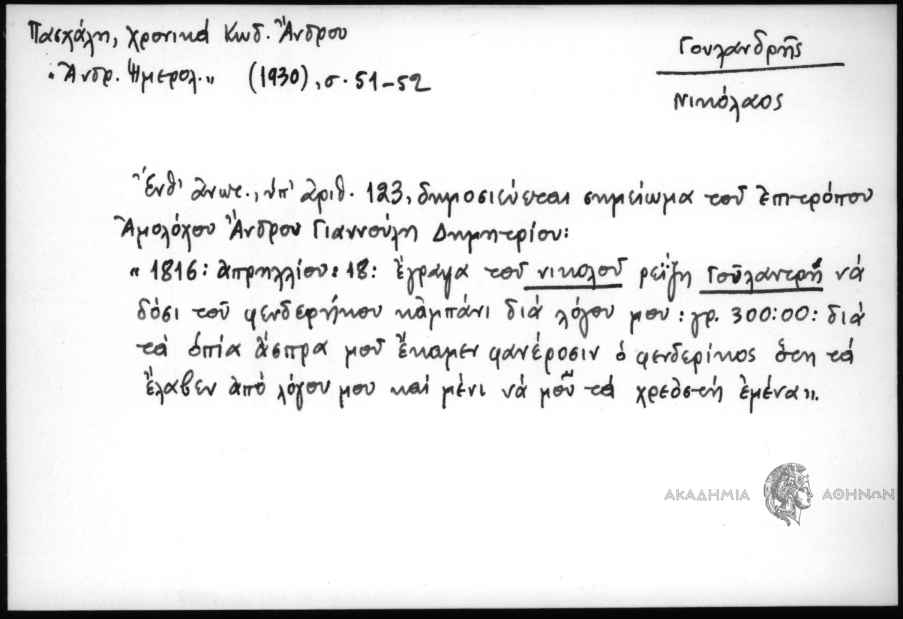 Πασχάλη, χρονικά Κωδ. Ἄνδρου
"Ἀνδρ. Ἡμερολ." (1930), σ. 51-52
Γουλανδρῆς
Νικόλαος
Ἔνθ' ἀνωτ., ὑπ' ἀριθ. 123, δημοσιεύεται σημείωμα τοῦ ἐπιτρόπου
Ἀμολόχου Ἄνδρου Γιαννούλη Δημητρίου:
"1816: ἀπρηλλίου: 18: ἔγραψα τοῦ νικολοῦ ρεΐζη Γοῦλαντρῆ νά
δόσι τοῦ φενδερήκου καμπάνι διά λόγου μου: γρ. 300:00: διά
τά ὁπία ἄσπρα μοῦ ἔκαμεν φανέροσιν ὁ φενδερίκος ὅτη τά
ἔλαβεν ἀπό λόγου μου καί μένι νά μοῦ τά χρεοστῆ ἐμένα".
ΑΚΑΔΗΜΙΑ ΑΘΗΝΩΝ